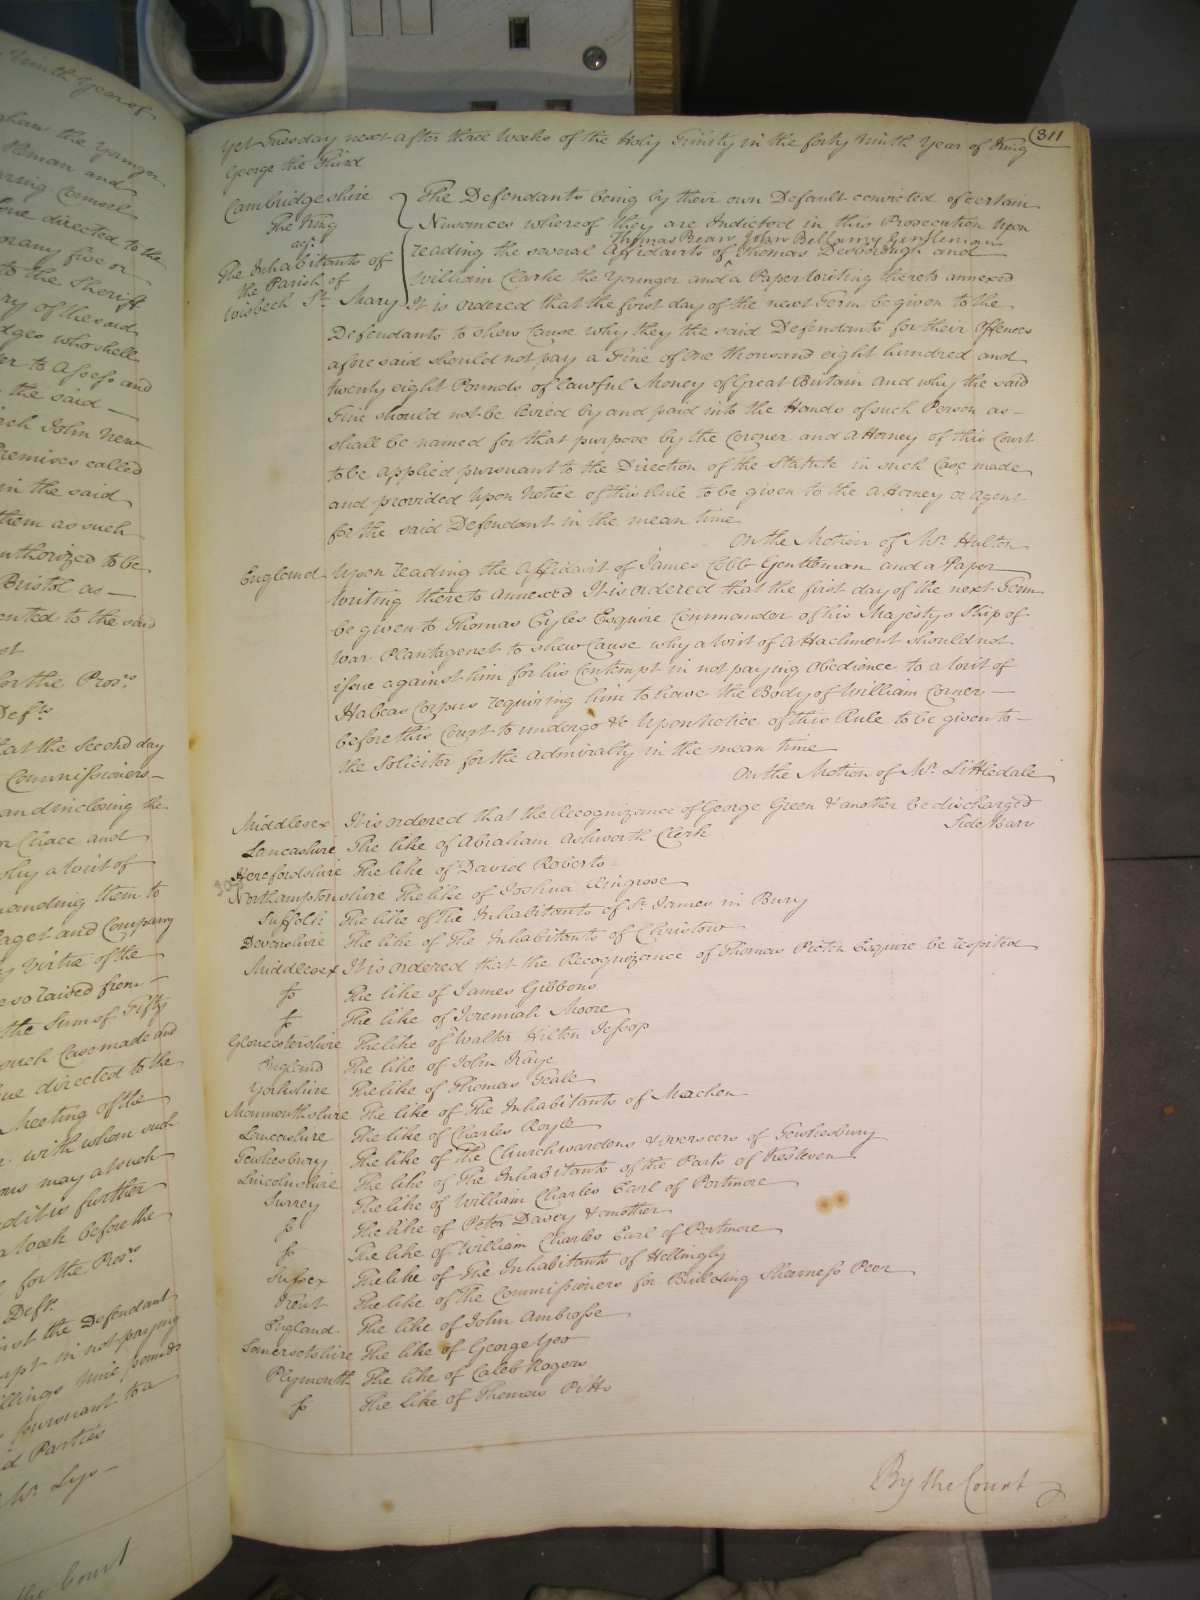 Ninth Year of
ghan the Younger
Heman and
aring Counsel
sue directed to the
or any five or
to the Sheriff
ry of the said
dges who shall
er to Assess and
the said —
ich John New
Premises called
in the said
them as such
uthorized to be
Bristol as —
ented to the said
st
for the Pros.rs
Def.ts
at the second day
Commissioners —
and inclosing the
or Chace and
why a Writ of
manding them to
aget and Company
y virtue of the
e so raised from —
the Sum of Fifty
such Case made and
ue directed to the
Meeting of the
with whom such
ous may at such
nd it is further
a Week before the
for the Pros.rs
Def.ts
ist the Defendant
mpt in not paying
illings nine pounds
pursuant to a
d Parties
Mr. Lys —
the Court
311
Yet Tuesday next after three Weeks of the Holy Trinity in the forty Ninth Year of King
George the Third
Cambridgeshire
The King
agt.
The Inhabitants of
the Parish of
Wisbech St. Mary
The Defendants being by their own Default convicted of certain
Nuisances whereof they are Indicted in this Prosecution Upon
Thomas Bean John Bellamy Gentleman
reading the several Affidavits of Thomas Desborough and
William Clarke the Younger and a Paper Writing thereto annexed
It is ordered that the first day of the next Term be given to the
Defendants to shew Cause why they the said Defendants for their Offences
aforesaid should not pay a Fine of One thousand eight hundred and
twenty eight Pounds of lawful Money of Great Britain and why the said
Fine should not be levied by and paid into the Hands of such Person as —
shall be named for that purpose by the Coroner and Attorney of this Court
to be applied pursuant to the Direction of the Statute in such Case made
and provided Upon Notice of this Rule to be given to the Attorney or Agent
for the said Defendant in the mean time
On the Motion of Mr. Hulton
England Upon reading the Affidavit of James Cobb Gentleman and a Paper
Writing thereto annexed It is ordered that the first day of the next Term
be given to Thomas Eyles Esquire Commander of his Majestys Ship of
War Plantagenet to shew Cause why a Writ of Attachment should not
issue against him for his Contempt in not paying Obedience to a Writ of
Habeas Corpus requiring him to have the Body of William Corner —
before this Court to undergo &c Upon Notice of this Rule to be given to —
the Solicitor for the Admiralty in the mean time
On the Motion of Mr. Littledale
Middlesex It is ordered that the Recognizance of George Green & another be discharged
Side Barr
Lancashire The like of Abraham Ashworth Clerk
Herefordshire The like of David Roberts
Northamptonshire The like of Joshua Ringrose
Suffolk The like of The Inhabitants of St. James in Bury
Devonshire The like of The Inhabitants of Christow
Middlesex It is ordered that the Recognizance of Thomas Picton Esquire be respited
fo The like of James Gibbons
fo The like of Jeremiah Moore
Gloucestershire The like of Walter Hilton Jessop
England The like of John Kaye
Yorkshire The like of Thomas Teale
Monmouthshire The like of The Inhabitants of Machen
Lancashire The like of Charles Royle
Tewkesbury The like of the Churchwardens & Overseers of Tewkesbury
Lincolnshire The like of The Inhabitants of the Parts of Kesteven
Surrey The like of William Charles Earl of Portmore
fo The like of Peter Davey & another
fo The like of William Charles Earl of Portmore
Sussex The like of The Inhabitants of Hellingly
Kent The like of the Commissioners for Building Sheerness Peer
England The like of John Ambrosse
Somersetshire The like of George Yeo
Plymouth The like of Caleb Rogers
fo The like of Thomas Pitts
By the Court